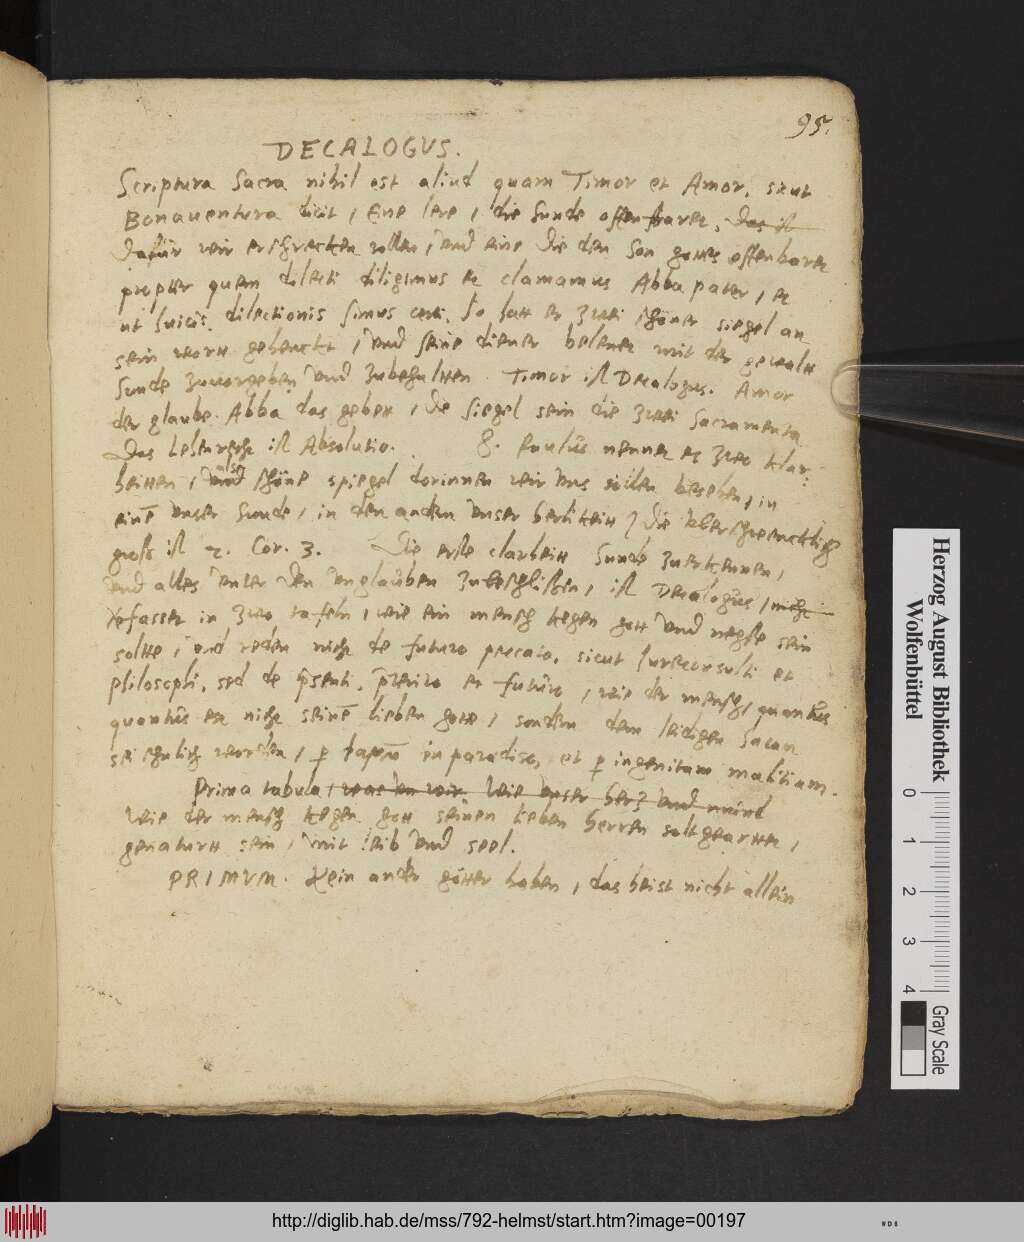 95.
DECALOGUS.
Scriptura Sacra nihil est aliud quam Timor et Amor, sicut
Bonauentura dicit, Ene lere, die Sunde offenbaret, das ist
dafür wir erschrecken sollen, und eine die den Son gottes offenbaret
propter quem dilecti diligimus et clamamus Abba pater, et
ut dilectionis simus certi. So hatt er zwei schöner siegel an
sein wortt gehenckt, und seine diener belenet mit der gewaltt
Sunde zuuorgeben und zubehaltten. Timor ist Decalogus. Amor
der glaube. Abba das gebett, de siegel sein die zwei Sacramenta
Das ist Absolutio. S. Paulus nennet es zwo klar:
heitten, als schöne spiegel dorinnen wir uns sollen besehen, in
einē unser Sunde, in den andern unser herlikeitt die uberschwencklich
gross ist 2. Cor. 3. Die erste clarheitt Sunde zuerkennen,
und alles unter den unglauben zubeschlißen, ist Decalogus, nicht
in zwo tafeln, wie ein mensch kegen gott und negste sein
soltte, und reden nicht de futuro peccato, sicut Iureconsulti et
philosophi, sed de p̄senti, p̄terito et futuro, wie der mensch, quantus
quantus er nicht seinē lieben gotte, sondern dem leidigen Satan
sei ehnlich worden, p lapsū in paradiso, et p ingenitam malitiam.
Prima tabula, was den wir Wie unser hertz und muind
Wie der mensch kegen gott seinen lieben herren solt geartet,
genaturtt sein, mit leib und seel.
PRIMUM. Kein ander götter haben, das heist nicht allein
Herzog August Bibliothek
Wolfenbüttel
0 1 2 3 4
Gray Scale
http://diglib.hab.de/mss/792-helmst/start.htm?image=00197